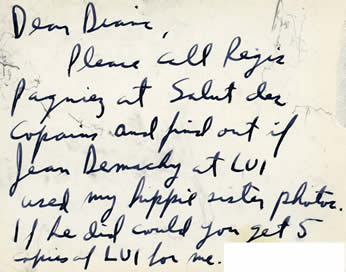 Dear Diane,
Please call Regis
Pagniez at Salut des
Copains and find out if
Jean Demachy at LUI
used my hippie sister photos.
If he did could you get 5
copies of LUI for me.